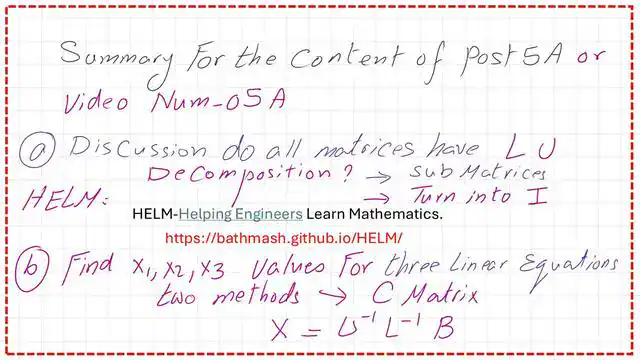 Summary For the Content of Post 5A or
Video Num-05A
a Discussion do all matrices have LU
Decomposition? → Sub Matrices
→ Turn into I
HELM:
HELM-Helping Engineers Learn Mathematics.
https://bathmash.github.io/HELM/
b Find x1, x2, x3 values For three Linear Equations
two methods → C Matrix
X = U⁻¹ L⁻¹ B